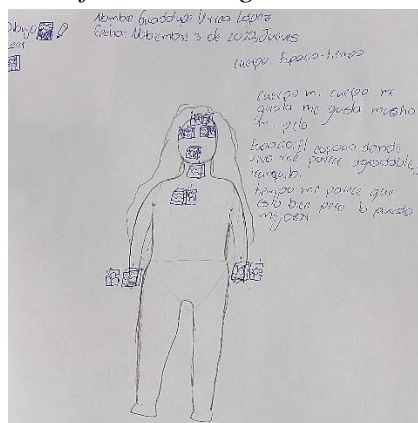 Dibujo
Nombre: Guadalupe López
Fecha: Noviembre 3 de 2022, Jueves
Cuerpo Espacio-tiempo
Cuerpo mi cuerpo me
gusta me gusta mucho
mi pelo
Espacio: El espacio donde
vivo me parece agradable,
tranquilo.
tiempo me parece que
esta bien pero lo puedo
mejorar